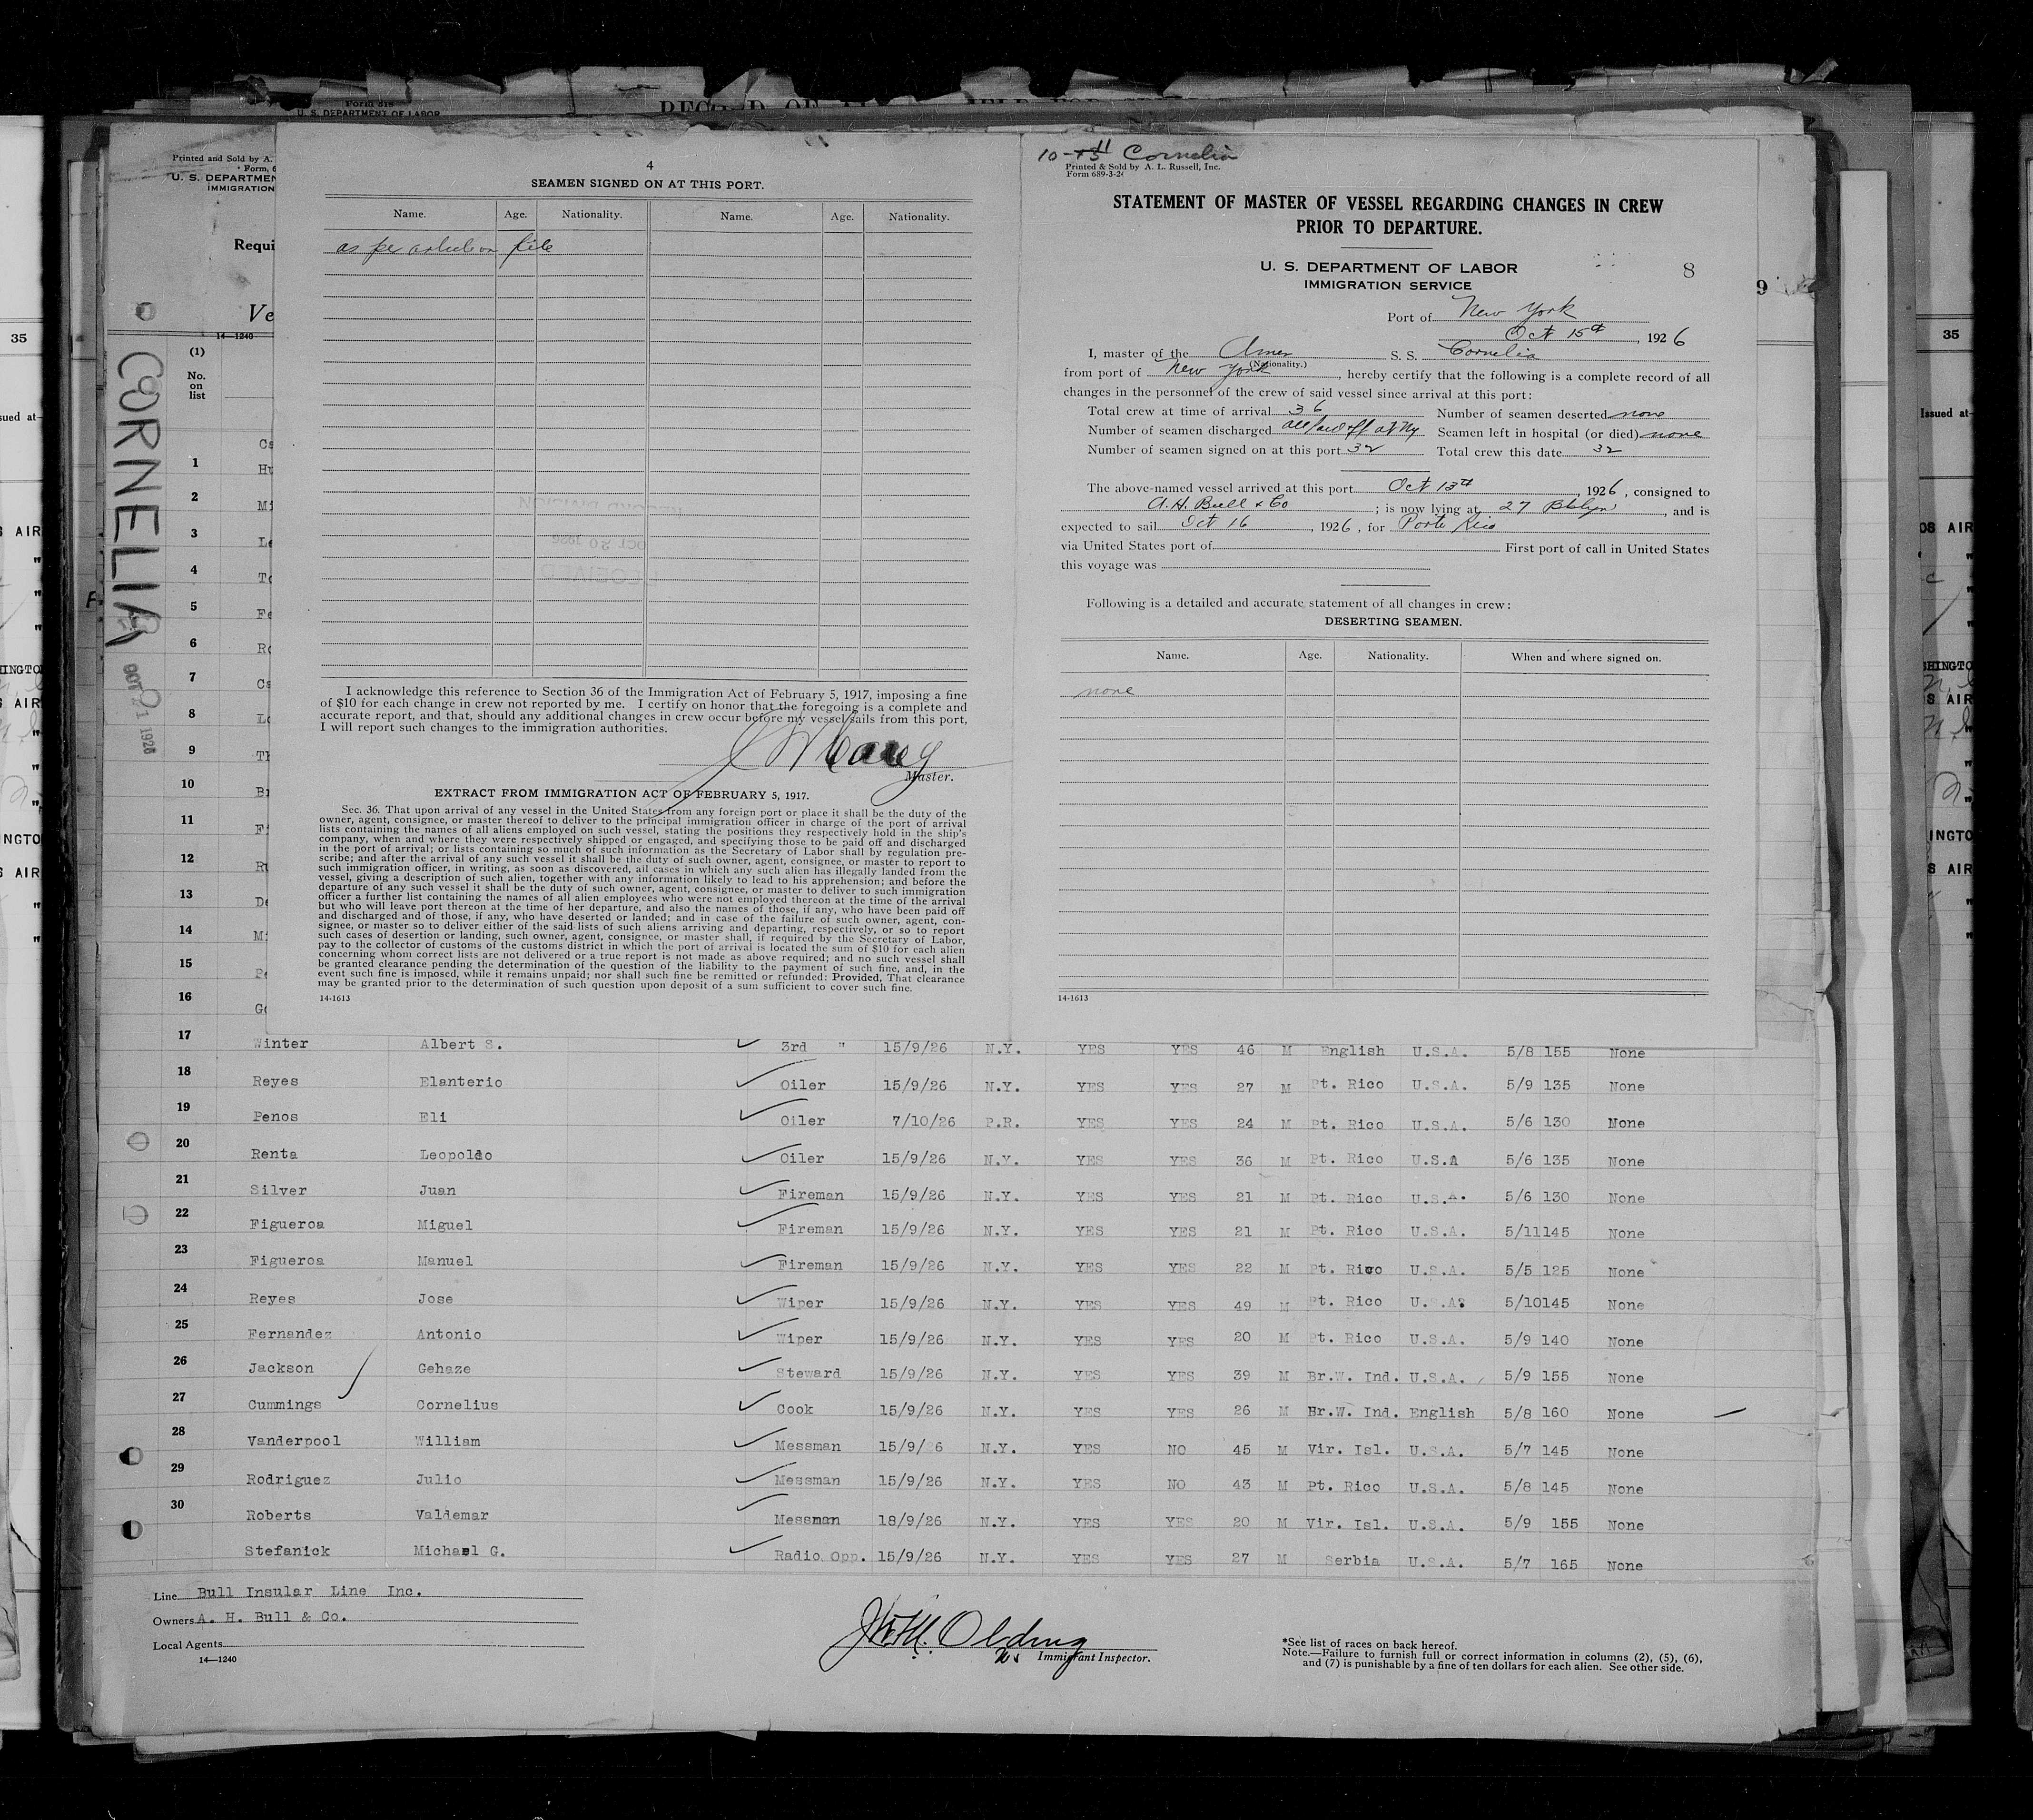 Form 818
U. S. DEPARTMENT OF LABOR
Printed and Sold by A.
Form,
U. S. DEPARTMEN
IMMIGRATION
Requi
Ve
14—1240
(1)
No.
on
list
CORNELIA
OCT 21 1926
4
SEAMEN SIGNED ON AT THIS PORT.
Name. Age. Nationality. Name. Age. Nationality.
as per article on file
RECORD DIVISION
OCT 20 1926
RECEIVED
I acknowledge this reference to Section 36 of the Immigration Act of February 5, 1917, imposing a fine
of $10 for each change in crew not reported by me. I certify on honor that the foregoing is a complete and
accurate report, and that, should any additional changes in crew occur before my vessel sails from this port,
I will report such changes to the immigration authorities.
Master.
EXTRACT FROM IMMIGRATION ACT OF FEBRUARY 5, 1917.
Sec. 36. That upon arrival of any vessel in the United States from any foreign port or place it shall be the duty of the
owner, agent, consignee, or master thereof to deliver to the principal immigration officer in charge of the port of arrival
lists containing the names of all aliens employed on such vessel, stating the positions they respectively hold in the ship's
company, when and where they were respectively shipped or engaged, and specifying those to be paid off and discharged
in the port of arrival; or lists containing so much of such information as the Secretary of Labor shall by regulation pre-
scribe; and after the arrival of any such vessel it shall be the duty of such owner, agent, consignee, or master to report to
such immigration officer, in writing, as soon as discovered, all cases in which any such alien has illegally landed from the
vessel, giving a description of such alien, together with any information likely to lead to his apprehension; and before the
departure of any such vessel it shall be the duty of such owner, agent, consignee, or master to deliver to such immigration
officer a further list containing the names of all alien employees who were not employed thereon at the time of the arrival
but who will leave port thereon at the time of her departure, and also the names of those, if any, who have been paid off
and discharged and of those, if any, who have deserted or landed; and in case of the failure of such owner, agent, con-
signee, or master so to deliver either of the said lists of such aliens arriving and departing, respectively, or so to report
such cases of desertion or landing, such owner, agent, consignee, or master shall, if required by the Secretary of Labor,
pay to the collector of customs of the customs district in which the port of arrival is located the sum of $10 for each alien
concerning whom correct lists are not delivered or a true report is not made as above required; and no such vessel shall
be granted clearance pending the determination of the question of the liability to the payment of such fine, and, in the
event such fine is imposed, while it remains unpaid; nor shall such fine be remitted or refunded: Provided, That clearance
may be granted prior to the determination of such question upon deposit of a sum sufficient to cover such fine.
14-1613
10- 11 Cornelia
Printed & Sold by A. L. Russell, Inc.
Form 689-3-26
STATEMENT OF MASTER OF VESSEL REGARDING CHANGES IN CREW
PRIOR TO DEPARTURE.
U. S. DEPARTMENT OF LABOR
IMMIGRATION SERVICE
8
9
Port of New York
Oct 15th, 1926
I, master of the Amer S. S. Cornelia
(Nationality.)
from port of New York, hereby certify that the following is a complete record of all
changes in the personnel of the crew of said vessel since arrival at this port:
Total crew at time of arrival 36 Number of seamen deserted none
Number of seamen discharged all paid off at NY Seamen left in hospital (or died) none
Number of seamen signed on at this port 32 Total crew this date 32
The above-named vessel arrived at this port Oct 13th, 1926, consigned to
A. H. Bull & Co; is now lying at 27 Bklyn, and is
expected to sail Oct 16, 1926, for Porto Rico
via United States port of First port of call in United States
this voyage was
Following is a detailed and accurate statement of all changes in crew:
DESERTING SEAMEN.
Name. Age. Nationality. When and where signed on.
none
14-1613
1
2
3
4
5
6
7
8
9
10
11
12
13
14
15
16
17
Winter Albert S. 3rd " 15/9/26 N.Y. YES YES 46 M English U.S.A. 5/8 155 None
18
Reyes Elanterio Oiler 15/9/26 N.Y. YES YES 27 M Pt. Rico U.S.A. 5/9 135 None
19
Penos Eli Oiler 7/10/26 P.R. YES YES 24 M Pt. Rico U.S.A. 5/6 130 None
20
Renta Leopoldo Oiler 15/9/26 N.Y. YES YES 36 M Pt. Rico U.S.A 5/6 135 None
21
Silver Juan Fireman 15/9/26 N.Y. YES YES 21 M Pt. Rico U.S.A. 5/6 130 None
22
Figueroa Miguel Fireman 15/9/26 N.Y. YES YES 21 M Pt. Rico U.S.A. 5/11 145 None
23
Figueroa Manuel Fireman 15/9/26 N.Y. YES YES 22 M Pt. Rico U.S.A. 5/5 125 None
24
Reyes Jose Wiper 15/9/26 N.Y. YES YES 49 M Pt. Rico U.S.A. 5/10 145 None
25
Fernandez Antonio Wiper 15/9/26 N.Y. YES YES 20 M Pt. Rico U.S.A. 5/9 140 None
26
Jackson Gehaze Steward 15/9/26 N.Y. YES YES 39 M Br.W. Ind. U.S.A. 5/9 155 None
27
Cummings Cornelius Cook 15/9/26 N.Y. YES YES 26 M Br.W. Ind. English 5/8 160 None
28
Vanderpool William Messman 15/9/26 N.Y. YES NO 45 M Vir. Isl. U.S.A. 5/7 145 None
29
Rodriguez Julio Messman 15/9/26 N.Y. YES NO 43 M Pt. Rico U.S.A. 5/8 145 None
30
Roberts Valdemar Messman 18/9/26 N.Y. YES YES 20 M Vir. Isl. U.S.A. 5/9 155 None
Stefanick Michael G. Radio Opp. 15/9/26 N.Y. YES YES 27 M Serbia U.S.A. 5/7 165 None
Line Bull Insular Line Inc.
Owners A. H. Bull & Co.
Local Agents
14—1240
Olding
Immigrant Inspector.
*See list of races on back hereof.
Note.—Failure to furnish full or correct information in columns (2), (5), (6),
and (7) is punishable by a fine of ten dollars for each alien. See other side.
35
35
Issued at